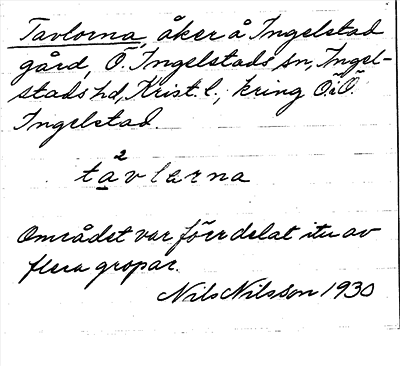 Tavlorna, åker å Ingelstad
gård, Ö. Ingelstads sn, Ingel-
stads hd, Krist. l., kring Ö. i Ö.
Ingelstad.
ta²vlerna
Området var förr delat itu av
flera gropar.
Nils Nilsson 1930